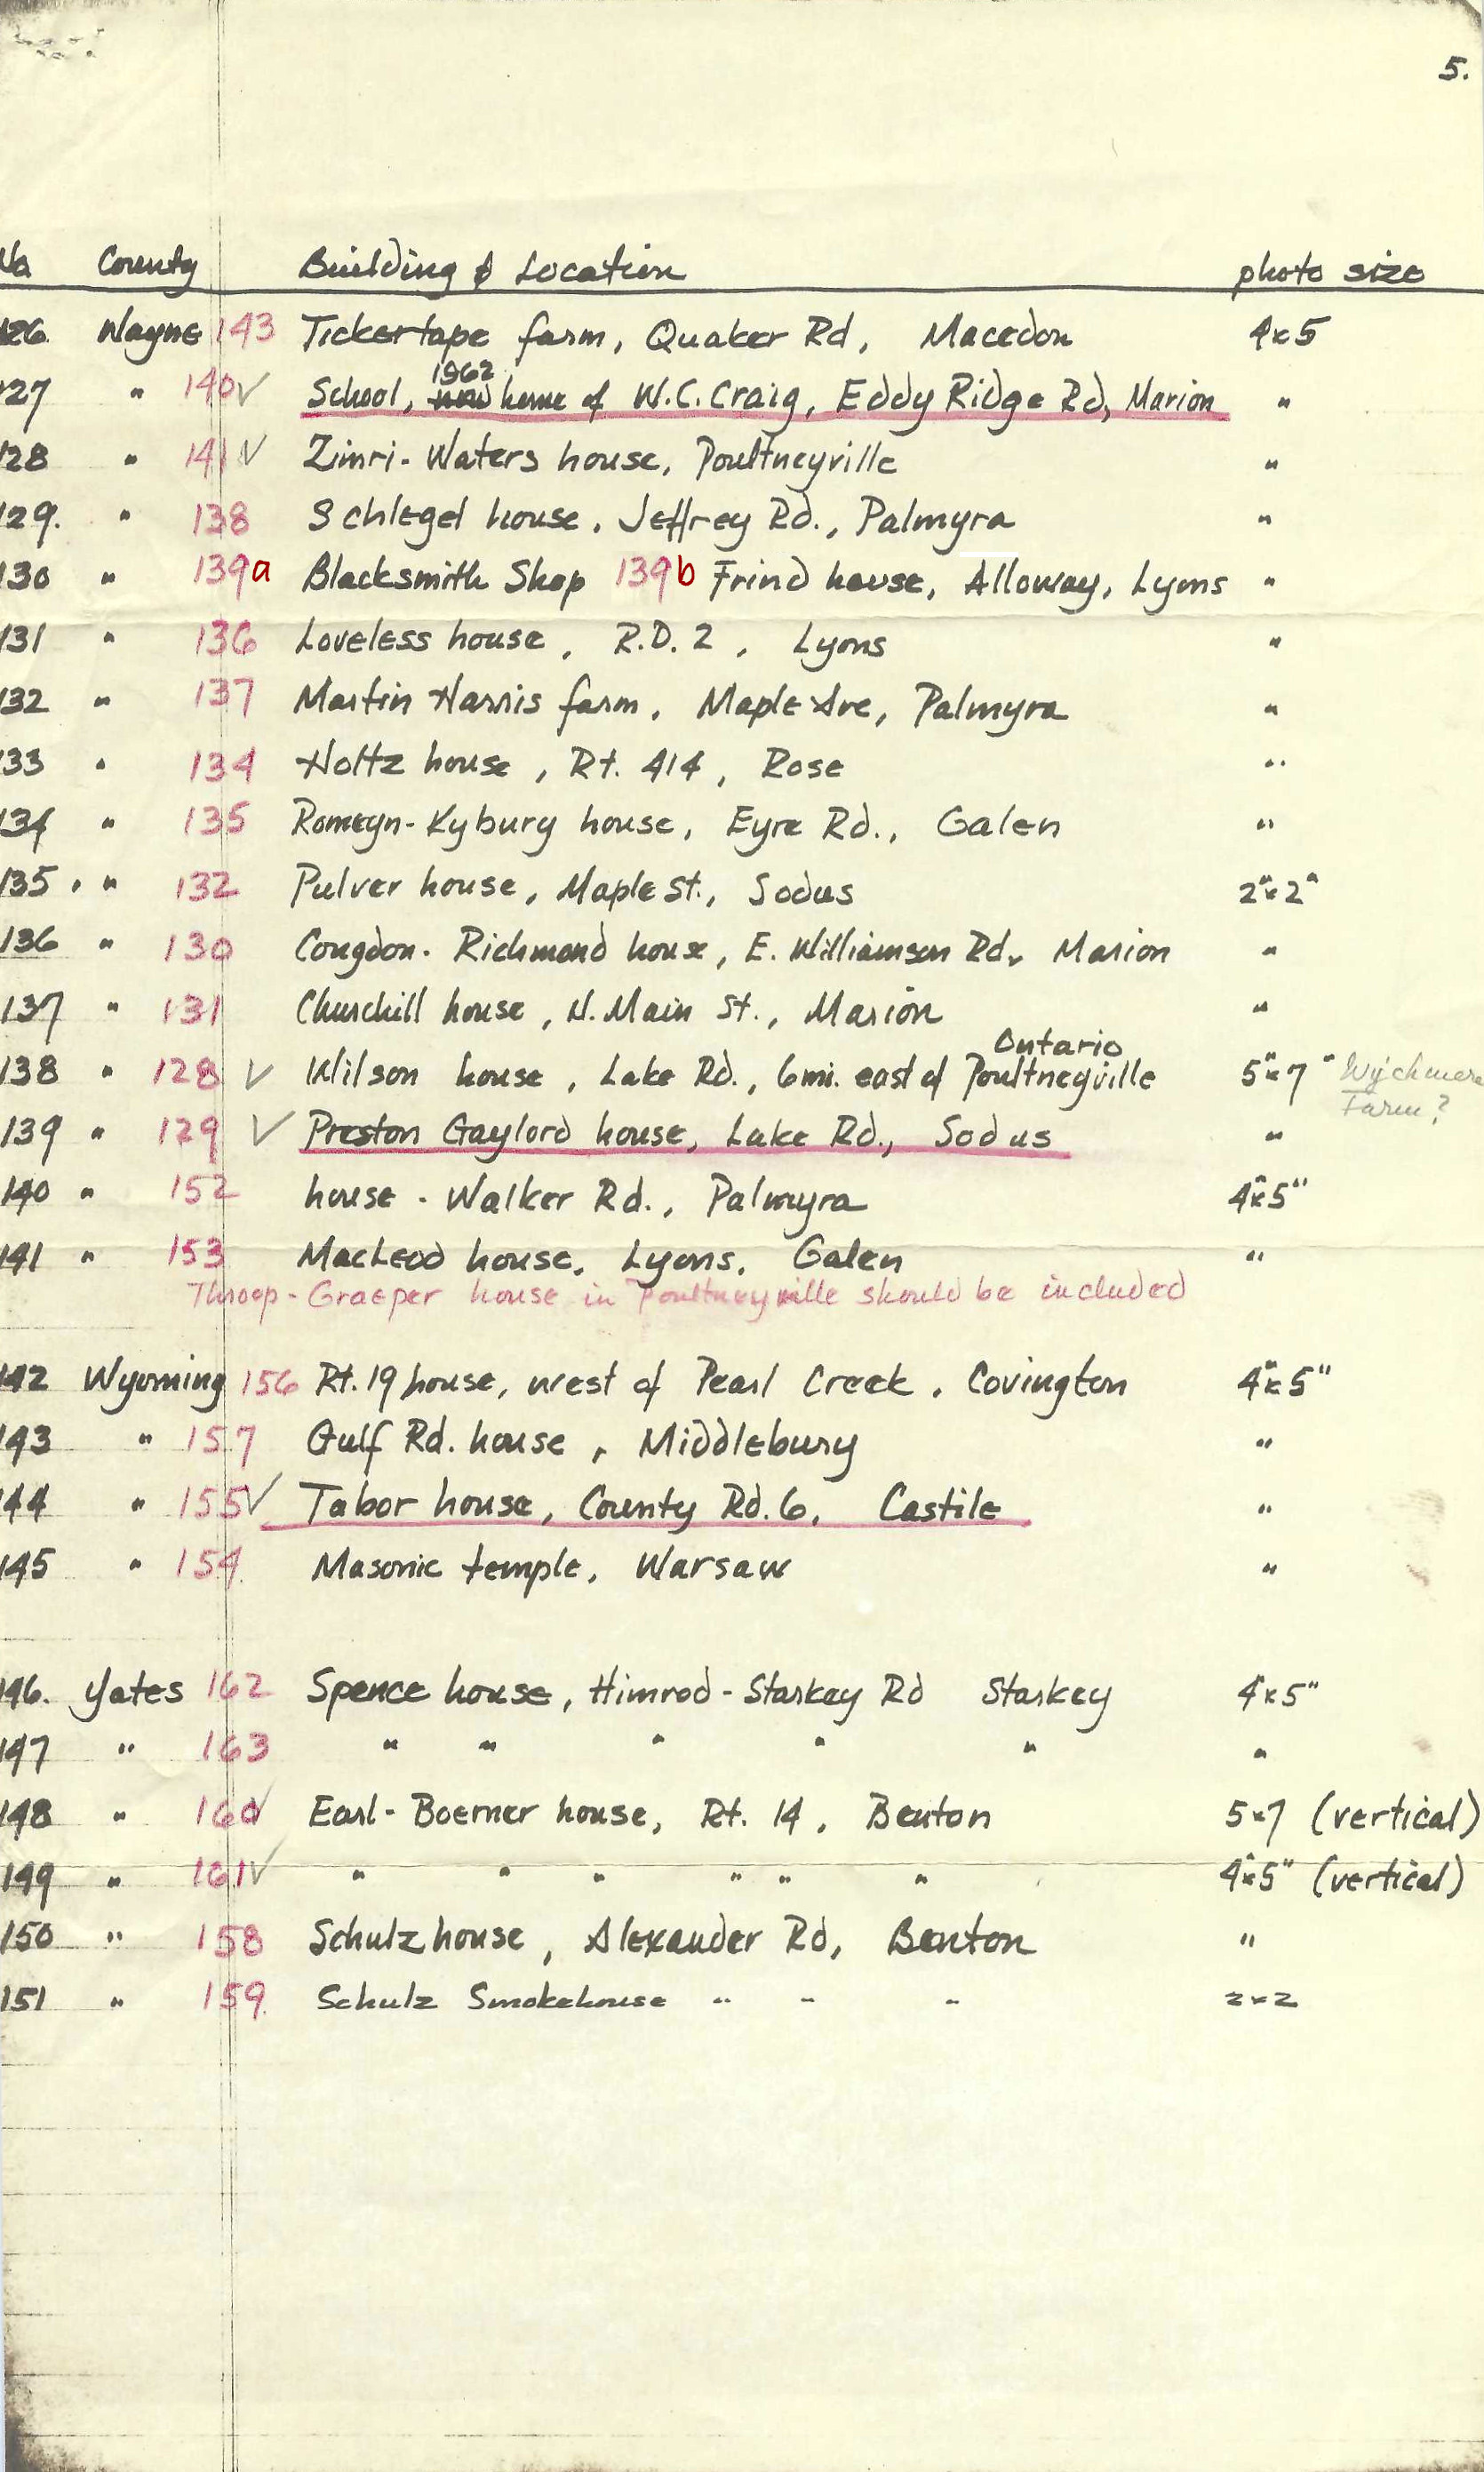 5.
No County Building & Location photo size
126. Wayne 143 Tickertape farm, Quaker Rd, Macedon 4x5
1962
127 " 140✓ School, now home of W.C. Craig, Eddy Ridge Rd, Marion "
128 " 141✓ Zimri-Waters house, Poultneyville "
129. " 138 Schlegel house, Jeffrey Rd., Palmyra "
130 " 139a Blacksmith Shop 139b Frind house, Alloway, Lyons "
131 " 136 Loveless house, R.D. 2, Lyons "
132 " 137 Martin Harris farm, Maple Ave, Palmyra "
133 " 134 Holtz house, Rt. 414, Rose "
134 " 135 Romeyn-Kybury house, Eyre Rd., Galen "
135. " 132 Pulver house, Maple St., Sodus 2"x2"
136 " 130 Congdon-Richmond house, E. Williamson Rd, Marion "
137 " 131 Churchill house, N. Main St., Marion "
Ontario
138 " 128 ✓ Wilson house, Lake Rd., 6mi. east of Poultneyville 5"x7" Wychmere
Farm?
139 " 129 ✓ Preston Gaylord house, Lake Rd., Sodus "
140 " 152 house - Walker Rd., Palmyra 4"x5"
141 " 153 MacLeod house, Lyons, Galen "
Throop-Graeper house in Poultneyville should be included
142 Wyoming 156 Rt. 19 house, west of Pearl Creek, Covington 4"x5"
143 " 157 Gulf Rd. house, Middlebury "
144 " 155✓ Tabor house, County Rd. 6, Castile "
145 " 154 Masonic temple, Warsaw "
146. Yates 162 Spence house, Himrod-Starkey Rd Starkey 4"x5"
147 " 163 " " " " " "
148 " 160✓ Earl-Boerner house, Rt. 14, Benton 5x7 (vertical)
149 " 161✓ " " " " " " 4"x5" (vertical)
150 " 158 Schulz house, Alexander Rd, Benton "
151 " 159 Schulz Smokehouse " " " 2x2